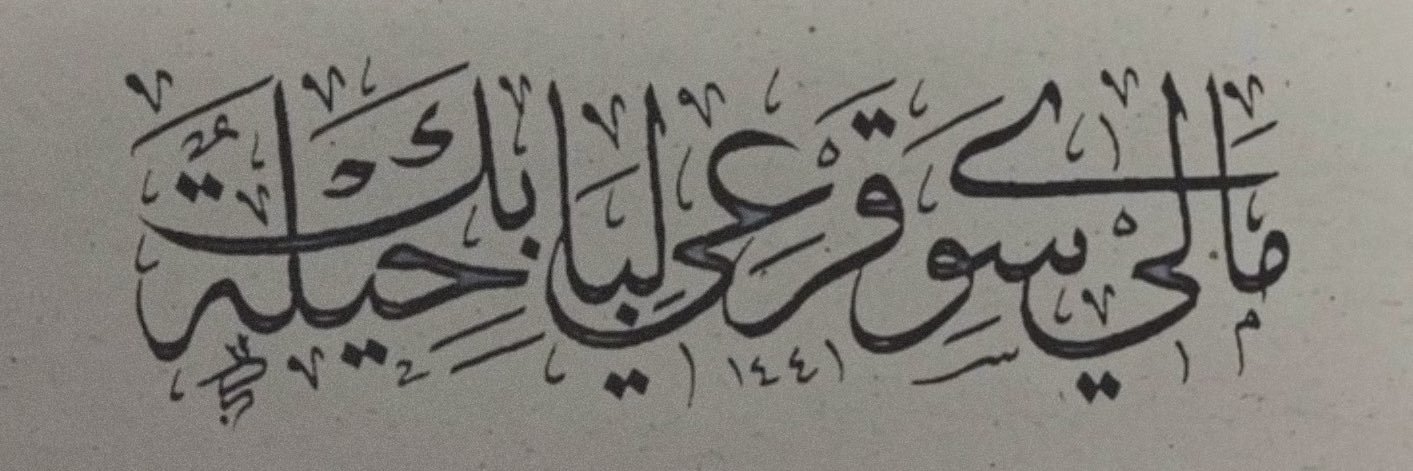 مَا لِي سِوَى قَرْعِي لِبَابِكَ حِيلَةٌ
١٤٤١